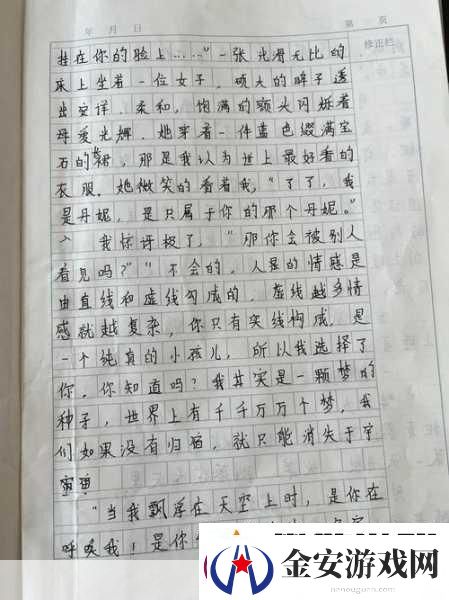 年 月 日 第 页
修正栏
挂在你的脸上……"一张光滑无比的
床上坐着一位女子，硕大的眸子透
出安详、柔和，饱满的额头闪烁着
母爱光辉。她穿着一件蓝色缀满宝
石的长裙，那是我认为世上最好看的
衣服。她微笑的看着我，"了了，我
是丹妮，是只属于你的那个丹妮。"
我惊讶极了，"那你会被别人
看见吗？""不会的，人显的情感是
由直线和虚线勾成的，虚线越多情
感就越复杂，你只有实线构成，是
一个纯真的小孩儿，所以我选择了
你。你知道吗？我其实是一颗梦的
种子，世界上有千千万万个梦，我
们如果没有归宿，就只能消失于宇
宙
"当我飘浮在天空上时，是你在
呼唤我！是你
金安游戏网